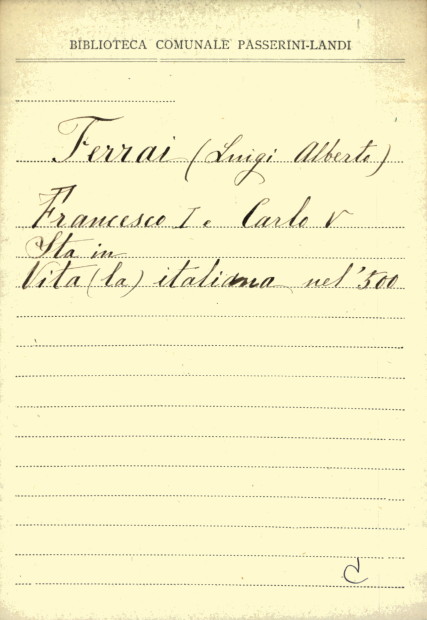 BIBLIOTECA COMUNALE PASSERINI-LANDI
Ferrai (Luigi Alberto)
Francesco I e Carlo V
Sta in
Vita (la) italiana nel '500